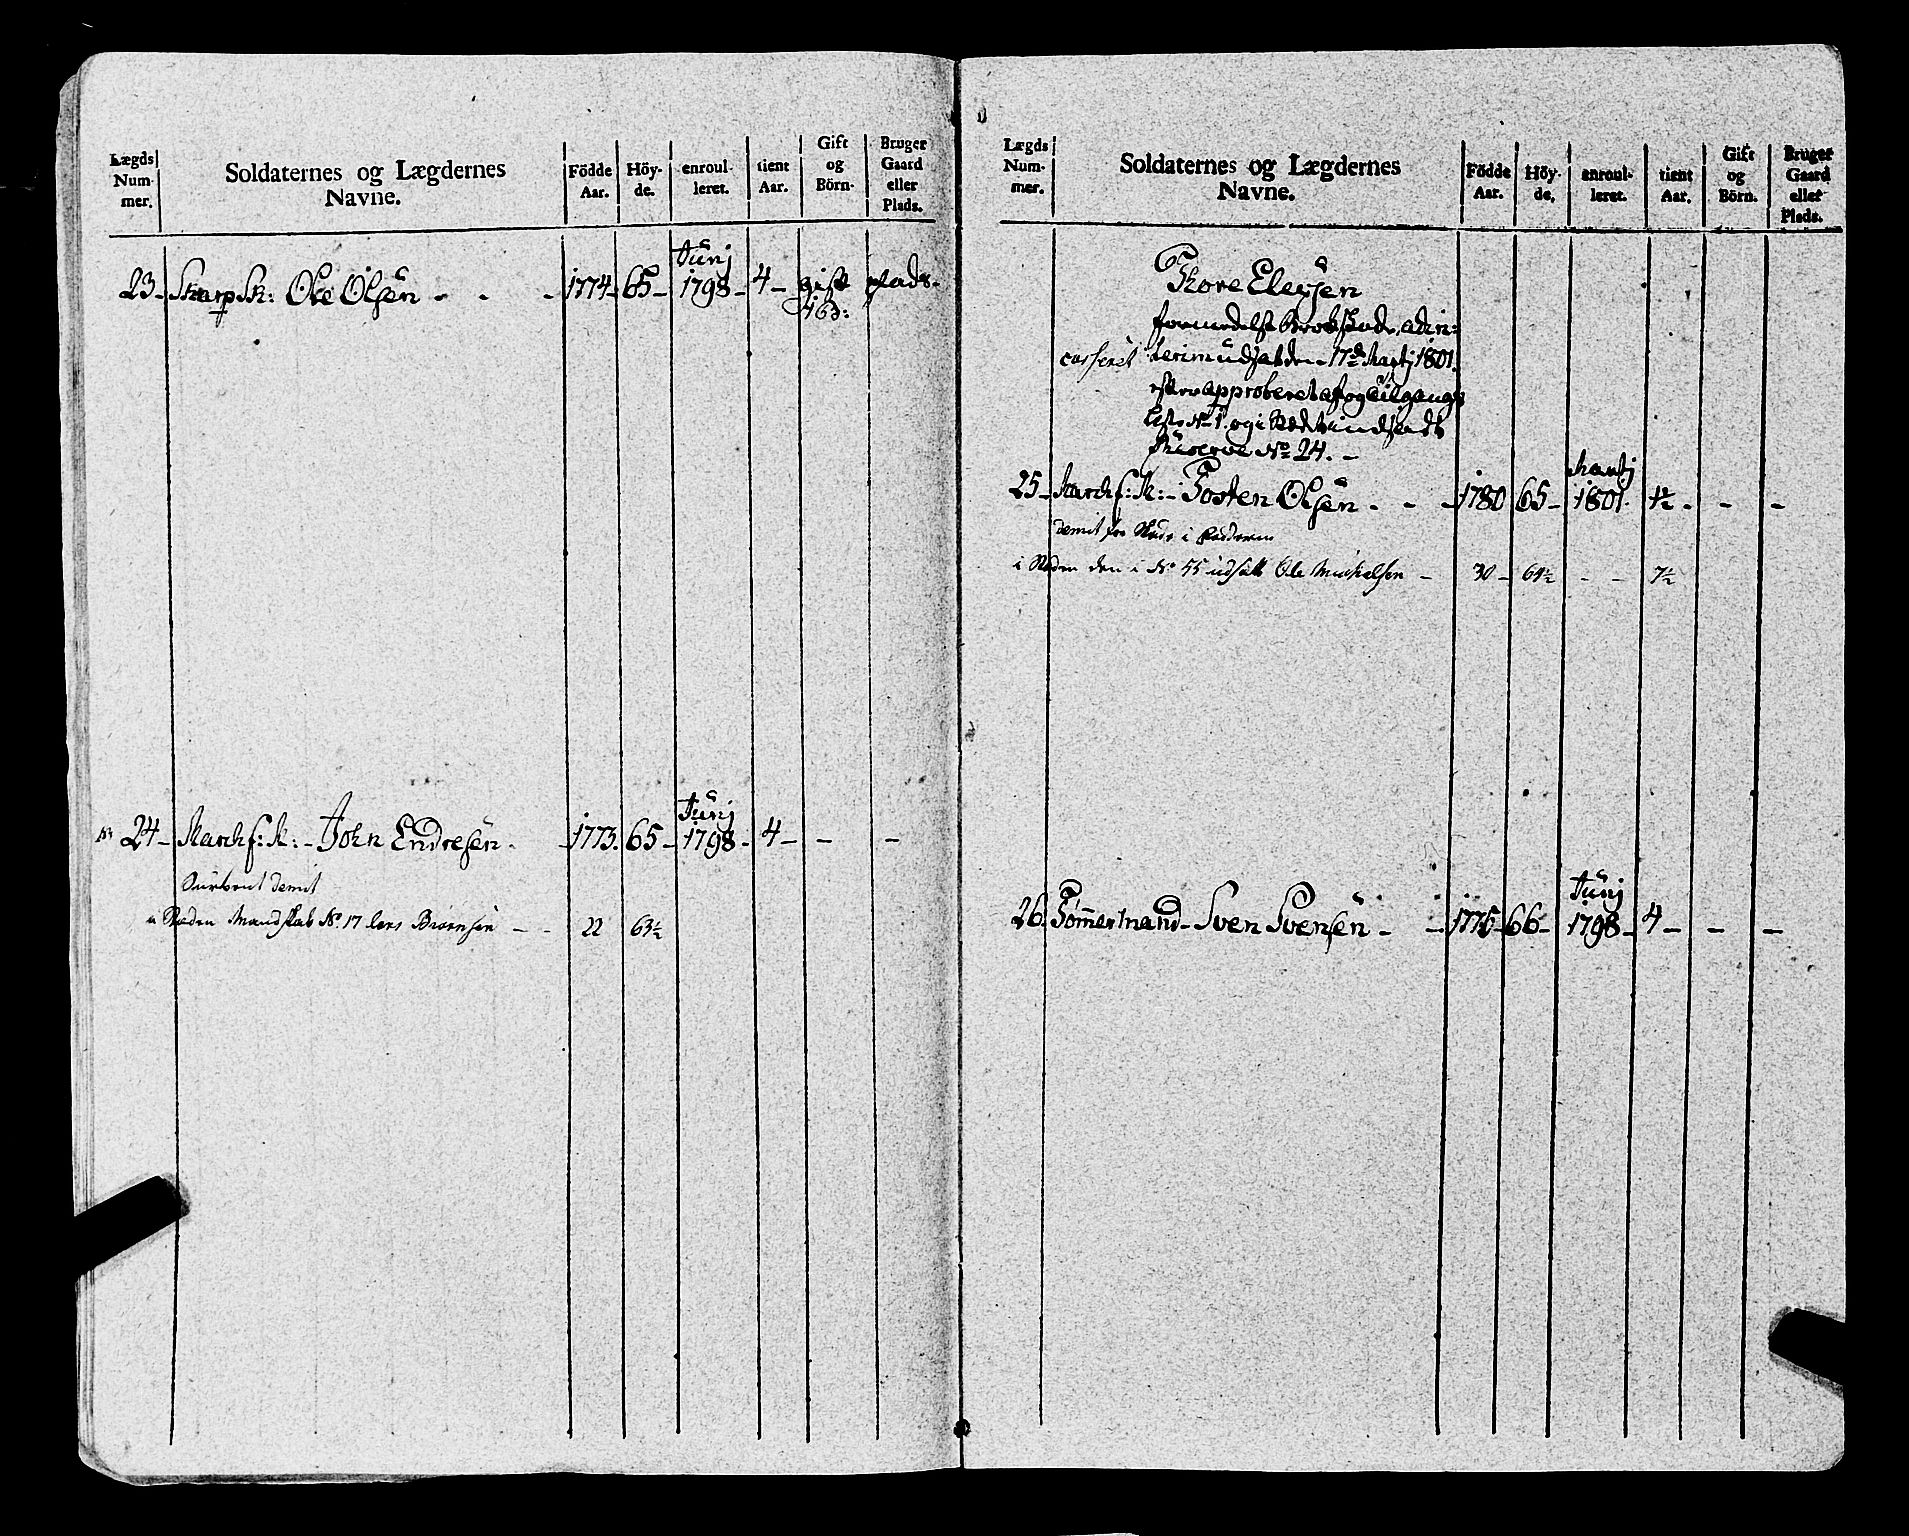 Lægds Num- mer. Soldaternes og Lægdernes Navne. Födde Aar. Höy- de. enroul- leret. tient Aar. Gift og Börn. Bruger Gaard eller Plads.
Junj
23- Skarp Sk: Ole Olsen - - - 1774- 65- 1798- 4- gift plads-
Junj
24- March f: K:- John Endresen - 1773. 65- 1798- 4- - -
demit
i Steden Mandskab No 17 Lars Biørnsen - - 22 63½
Lægds Num- mer. Soldaternes og Lægdernes Navne. Födde Aar. Höy- de. enroul- leret. tient Aar. Gift og Börn. Bruger Gaard eller Plads.
Thore Elevsen
formedelst Brokskade, ad in=
casseret terim udsat den 17de Martj 1801.
approberet af og Tilgangs
Liste No 1. og i Stedet indsendt
Reserve No 24. -
Martj
25- March f: K:- Tosten Olsen - - - 1780 65- 1801. 1½ - - -
demit for Skade i
i Steden den i No 55 udsatt Ole Michelsen - 30- 64½ - - 7½
Junj
26. Tømmermand- Sven Svensen - - 1775- 66- 1798- 4- - -